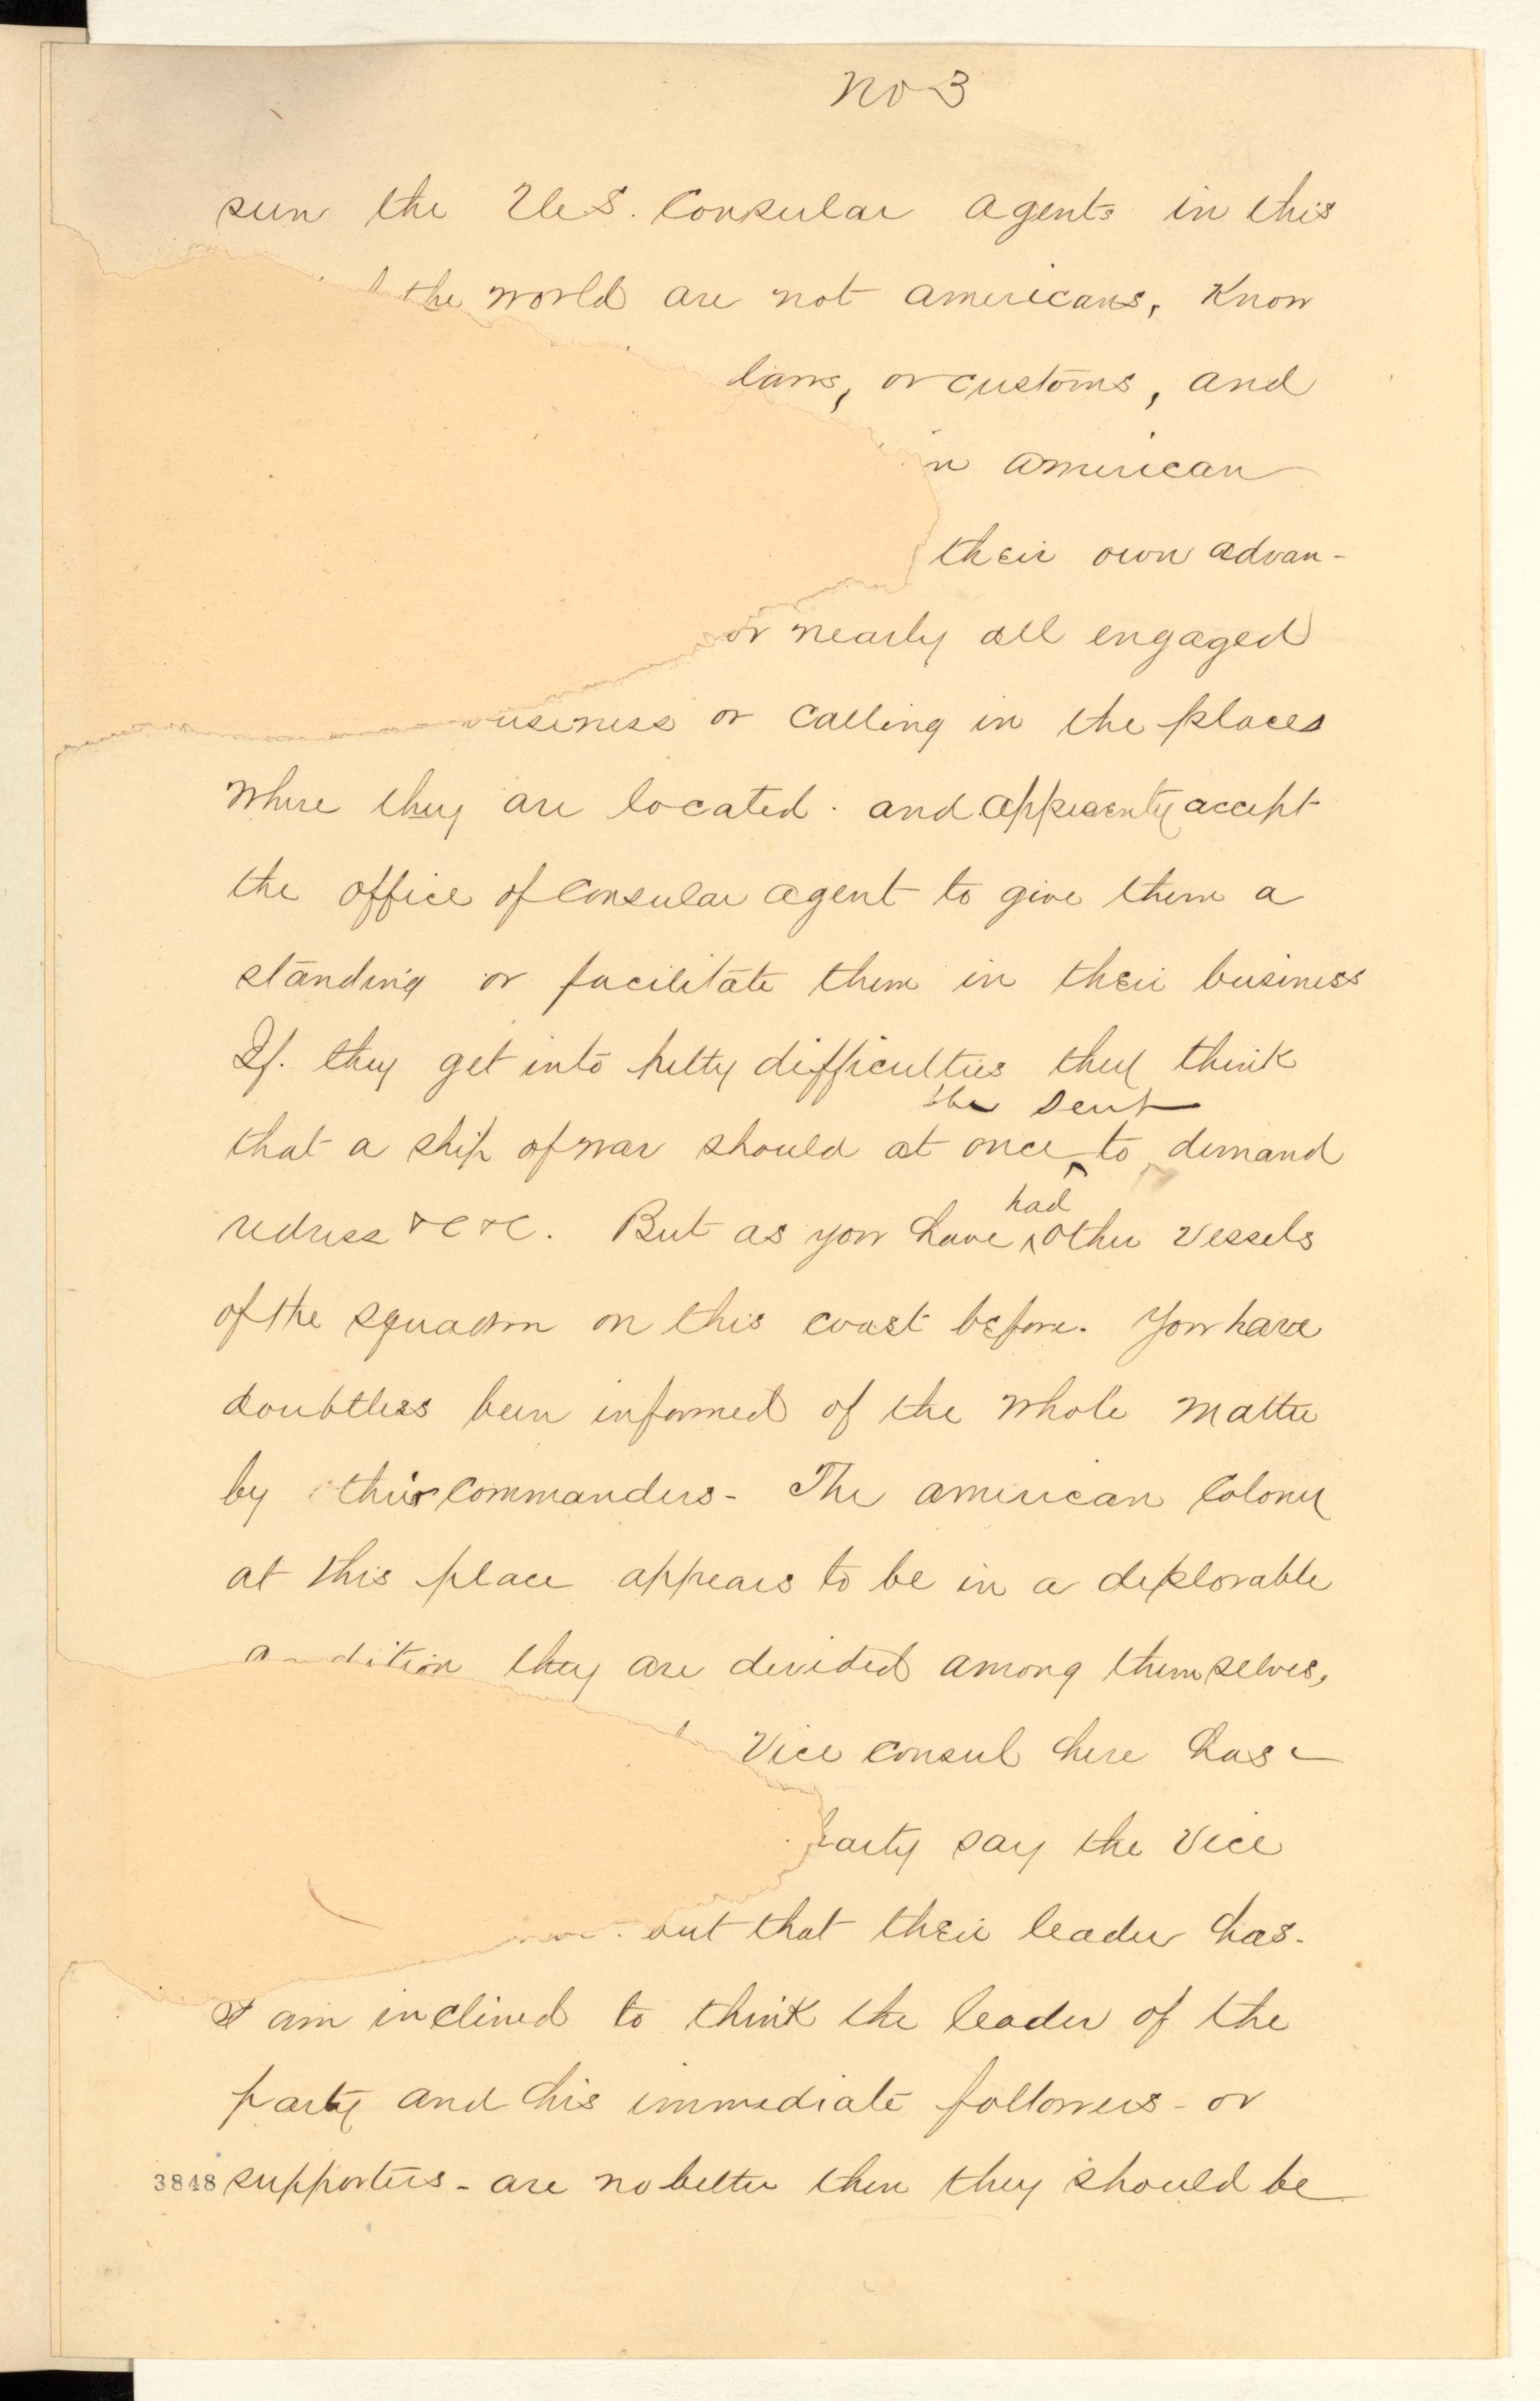 No 3
seen the U.S. Consular agents in this
the world are not americans, Know
laws, or customs, and
n american
their own advan-
or nearly all engaged
usiness or calling in the places
where they are located. and apparently accept
the office of Consular agent to give them a
standing or facilitate them in their business
If. they get into petty difficulties they think
be sent
that a ship of war should at once ^ to demand
had
redress &c &c. But as you have ^ other vessels
of the squadron on this coast before. You have
doubtless been informed of the whole matter
by their Commanders - The american Colony
at this place appears to be in a deplorable
condition they are devided among themselves,
Vice Consul here has -
party say the Vice
but that their leader has.
I am inclined to think the leader of the
party and his immediate followers - or
3848 supporters - are no better then they should be